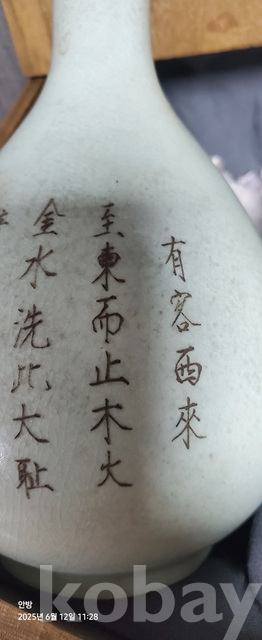 有客西來
至東而止木火
金水洗此大恥
안방
2025년 6월 12일 11:28
kobay